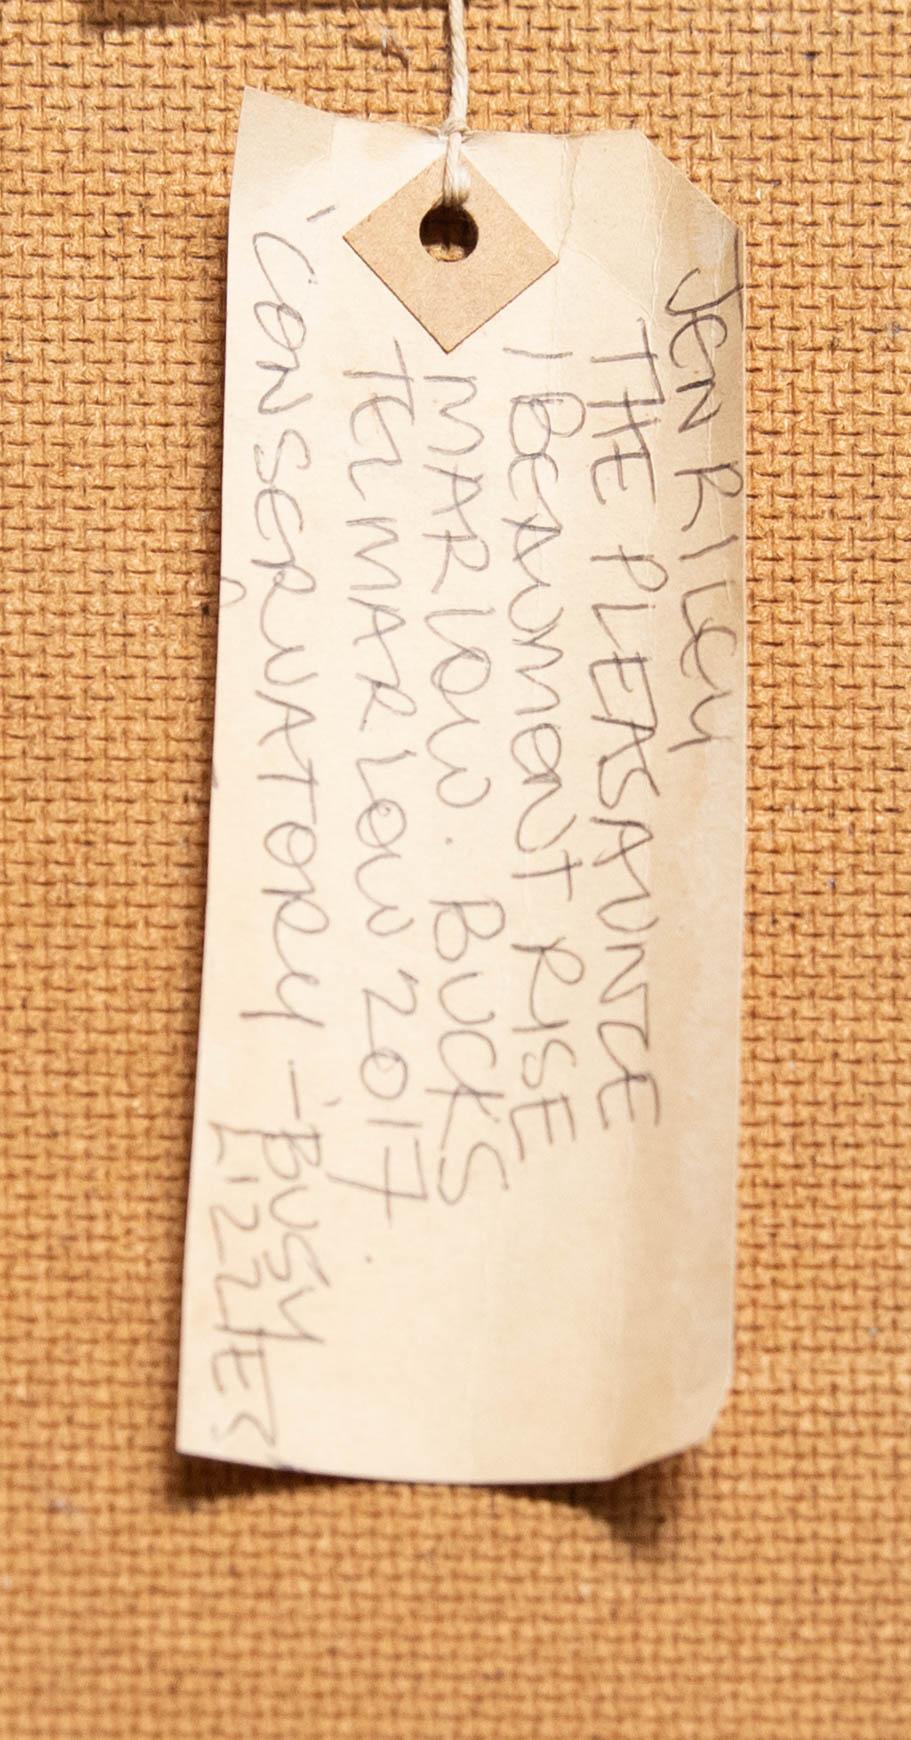 JEN RILEY
THE PLEASAUNCE
1 BEAUMONT RISE
MARLOW. BUCKS
TEL MARLOW 2017.
'CONSERVATORY - 'BUSY
LIZZIES'